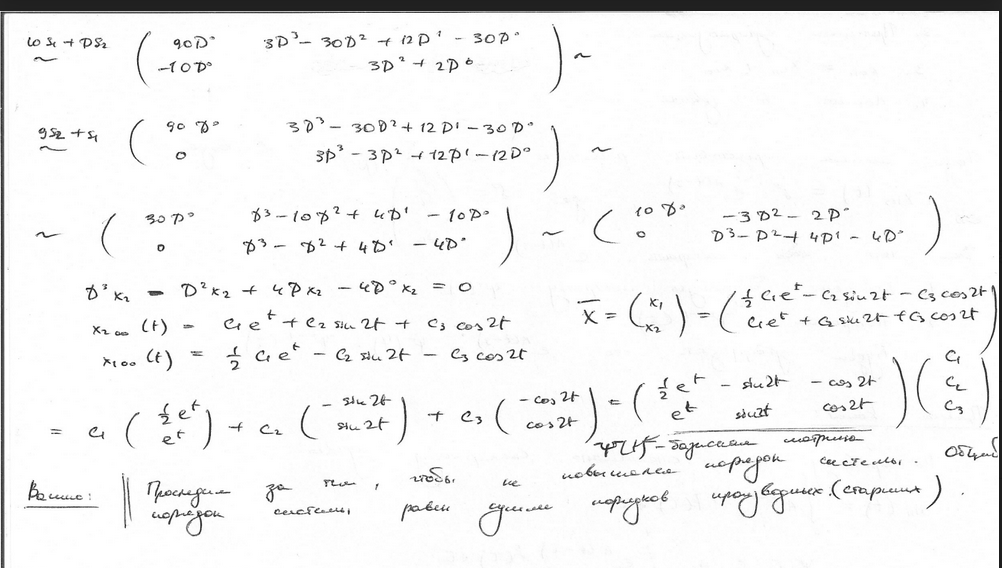 10 S₁ + DS₂ ~ ( 90D° 3D³ - 30D² + 12D¹ - 30D°
-10D° 3D² + 2D° ) ~
9S₂ + S₁ ~ ( 90 D° 3D³ - 30D² + 12D¹ - 30D°
0 3D³ - 3D² + 12D¹ - 12D° ) ~
~ ( 30D° D³ - 10D² + 4D¹ - 10D° ) ~ ( 10 D° -3D² - 2D°
0 D³ - D² + 4D¹ - 4D° ) 0 D³ - D² + 4D¹ - 4D° )
D³x₂ - D²x₂ + 4Dx₂ - 4D°x₂ = 0
x₂₀₀ (t) = C₁e^t + C₂ sin 2t + C₃ cos 2t
x₁₀₀ (t) = 1/2 C₁e^t - C₂ sin 2t - C₃ cos 2t
X̄ = ( x₁ x₂ ) = ( 1/2 C₁e^t - C₂ sin 2t - C₃ cos 2t
C₁e^t + C₂ sin 2t + C₃ cos 2t )
= C₁ ( 1/2 e^t e^t ) + C₂ ( - sin 2t sin 2t ) + C₃ ( - cos 2t cos 2t ) = ( 1/2 e^t - sin 2t - cos 2t
e^t sin 2t cos 2t ) ( C₁ C₂ C₃ )
Ψ(t) - базисная матрица
Важно: Проследим за тем, чтобы не повышался порядок системы. Общий
порядок системы равен сумме порядков производных (старших).